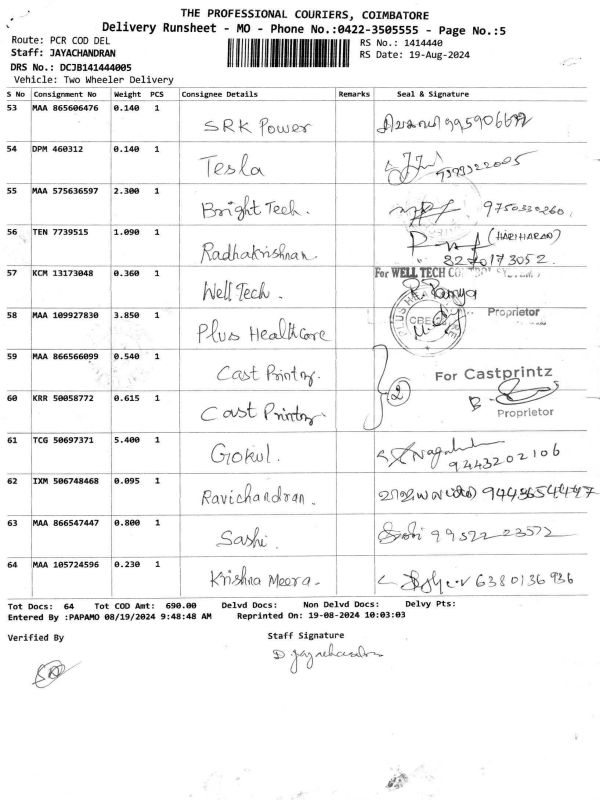 THE PROFESSIONAL COURIERS, COIMBATORE
Delivery Runsheet - MO - Phone No.:0422-3505555 - Page No.:5
Route: PCR COD DEL
RS No.: 1414440
Staff: JAYACHANDRAN
RS Date: 19-Aug-2024
DRS No.: DCJB141444005
Vehicle: Two Wheeler Delivery
S No Consignment No Weight PCS Consignee Details Remarks Seal & Signature
53 MAA 865606476 0.140 1
SRK Power
54 DPM 460312 0.140 1
Tesla
55 MAA 575636597 2.300 1
Bright Tech. 9750330260
56 TEN 7739515 1.090 1
(HARIHARAN)
Radhakrishnan
8270173052
57 KCM 13173048 0.360 1 For WELL TECH
Well Tech. R. Ramya
58 MAA 109927830 3.850 1 Proprietor
Plus Healthcare
59 MAA 866566099 0.540 1
Cast Printz. For Castprintz
2
60 KRR 50058772 0.615 1
Cast Printz. Proprietor
61 TCG 50697371 5.400 1
Gokul. 9443202106
62 IXM 506748468 0.095 1
Ravichandran. 9443654447
63 MAA 866547447 0.800 1
Sashi. 99522 23572
64 MAA 105724596 0.230 1
Krishna Meera. 6380136936
Tot Docs: 64 Tot COD Amt: 690.00 Delvd Docs: Non Delvd Docs: Delvy Pts:
Entered By :PAPAMO 08/19/2024 9:48:48 AM Reprinted On: 19-08-2024 10:03:03
Verified By Staff Signature